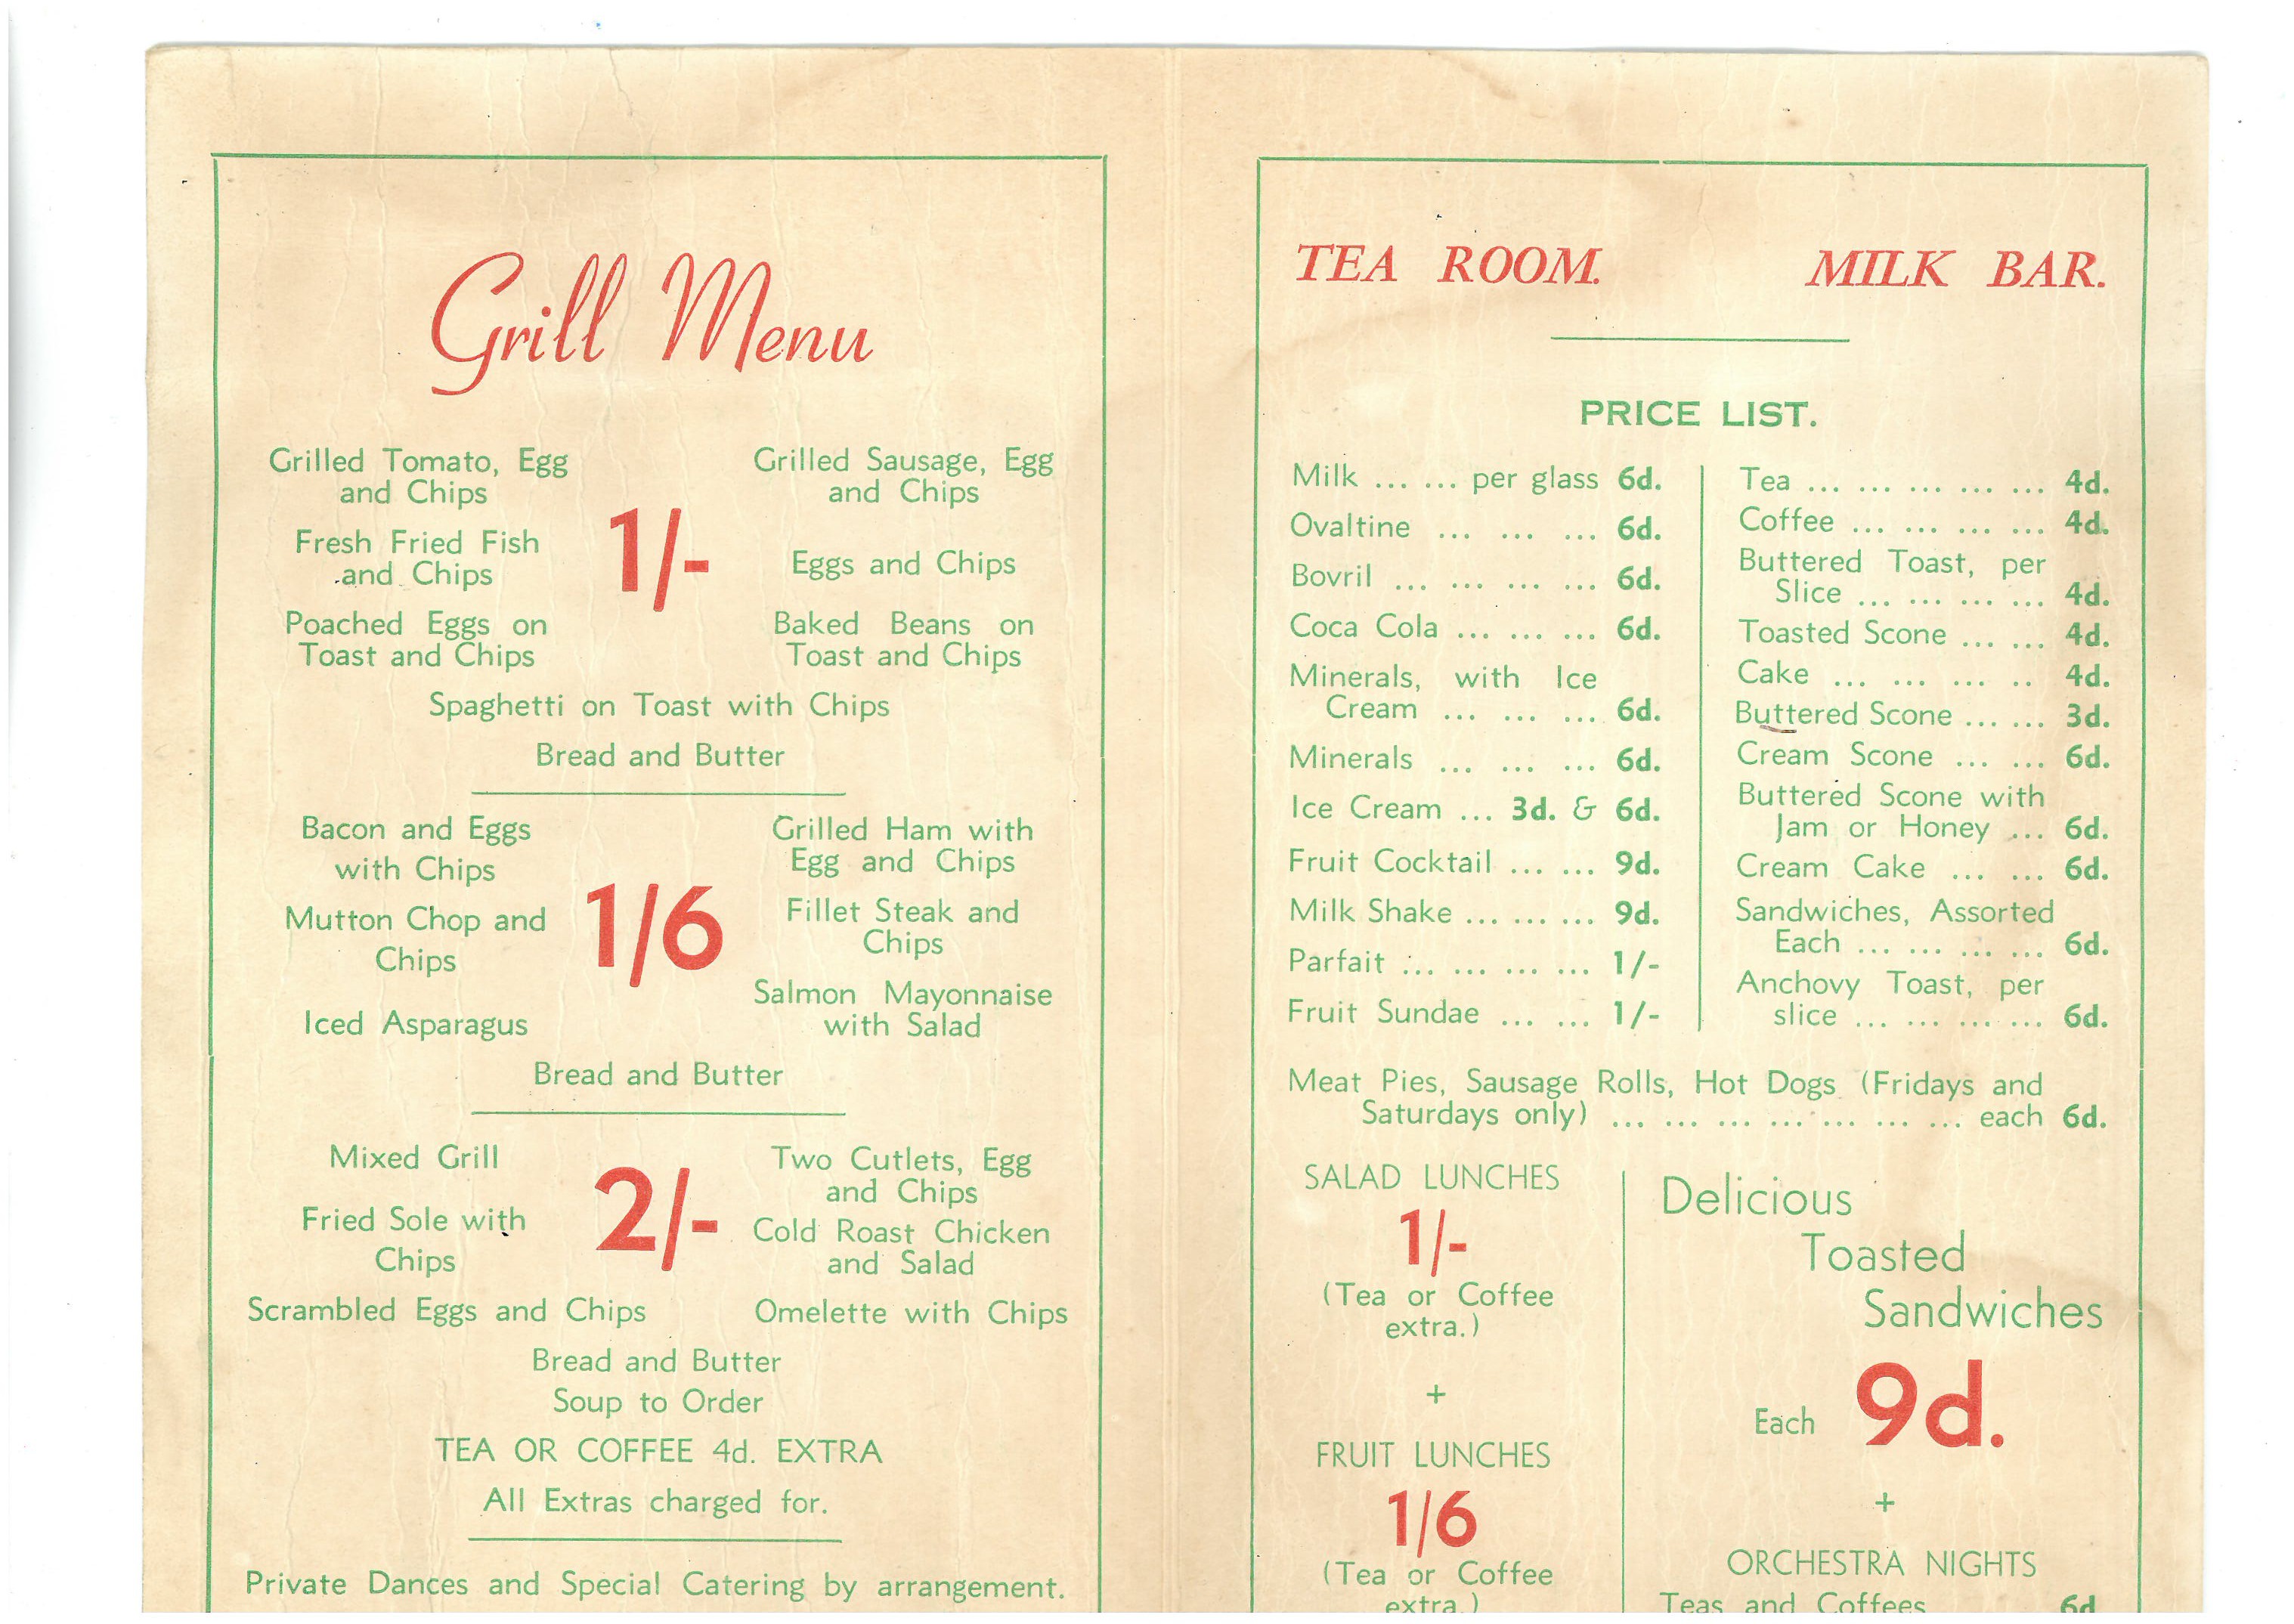 Grill Menu
Grilled Tomato, Egg
and Chips
Fresh Fried Fish
and Chips
Poached Eggs on
Toast and Chips
1/-
Grilled Sausage, Egg
and Chips
Eggs and Chips
Baked Beans on
Toast and Chips
Spaghetti on Toast with Chips
Bread and Butter
Bacon and Eggs
with Chips
Mutton Chop and
Chips
Iced Asparagus
1/6
Grilled Ham with
Egg and Chips
Fillet Steak and
Chips
Salmon Mayonnaise
with Salad
Bread and Butter
Mixed Grill
Fried Sole with
Chips
Scrambled Eggs and Chips
2/-
Two Cutlets, Egg
and Chips
Cold Roast Chicken
and Salad
Omelette with Chips
Bread and Butter
Soup to Order
TEA OR COFFEE 4d. EXTRA
All Extras charged for.
Private Dances and Special Catering by arrangement.
TEA ROOM. MILK BAR.
PRICE LIST.
Milk ... ... per glass 6d.
Ovaltine ... ... ... 6d.
Bovril ... ... ... ... 6d.
Coca Cola ... ... ... 6d.
Minerals, with Ice
Cream ... ... ... 6d.
Minerals ... ... ... 6d.
Ice Cream ... 3d. & 6d.
Fruit Cocktail ... ... 9d.
Milk Shake ... ... ... 9d.
Parfait ... ... ... ... 1/-
Fruit Sundae ... ... 1/-
Tea ... ... ... ... ... 4d.
Coffee ... ... ... ... 4d.
Buttered Toast, per
Slice ... ... ... ... 4d.
Toasted Scone ... ... 4d.
Cake ... ... ... .. 4d.
Buttered Scone ... ... 3d.
Cream Scone ... ... 6d.
Buttered Scone with
Jam or Honey ... 6d.
Cream Cake ... ... 6d.
Sandwiches, Assorted
Each ... ... ... ... 6d.
Anchovy Toast, per
slice ... ... ... ... 6d.
Meat Pies, Sausage Rolls, Hot Dogs (Fridays and
Saturdays only) ... ... ... ... ... ... ... each 6d.
SALAD LUNCHES
1/-
(Tea or Coffee
extra.)
+
FRUIT LUNCHES
1/6
(Tea or Coffee
extra.)
Delicious
Toasted
Sandwiches
Each 9d.
+
ORCHESTRA NIGHTS
Teas and Coffees 6d